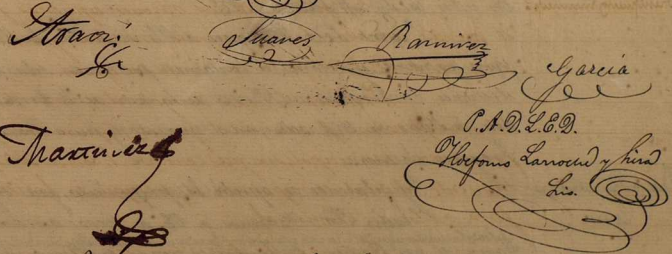 Suares
Ramirez
Garcia
Martinez
P. A. D. L. E. D.
Ildefonso Larroche y Lira
Lis.